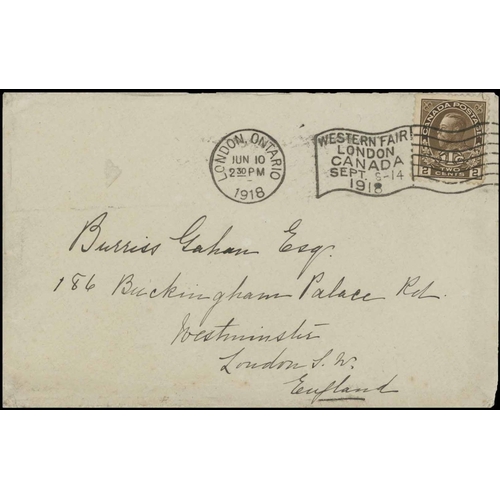 LONDON, ONTARIO
JUN 10
2 30 PM
1918
WESTERN FAIR
LONDON
CANADA
SEPT. 6-14
1918
CANADA POSTAGE
1Tc
2 TWO CENTS 2
Burriss Gahan Esq.
186 Buckingham Palace Rd.
Westminster
London S. W.
England